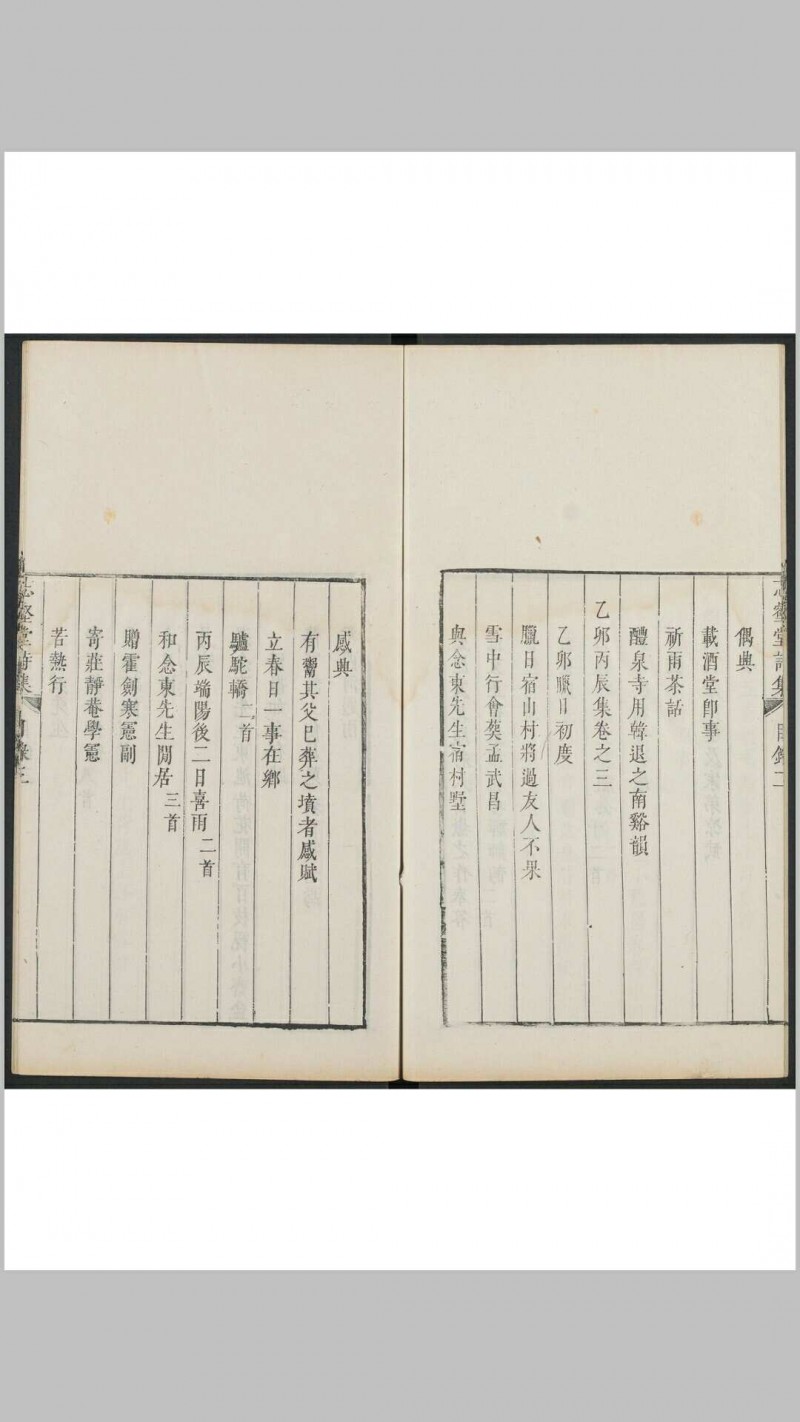 志壑堂詩集 目錄二
偶興
載酒堂卽事
祈雨茶話
醴泉寺用韓退之南谿韻
乙卯丙辰集卷之三
乙卯臘日初度
臘日宿山村將過友人不果
雪中行會葬孟武昌
與念東先生宿村墅
感興
有鬻其父已葬之墳者感賦
立春日一事在鄉
驢駝轎二首
丙辰端陽後二日喜雨二首
和念東先生閒居三首
贈霍劍寒憲副
寄莊靜菴學憲
苦熱行
志壑堂詩集 目錄三